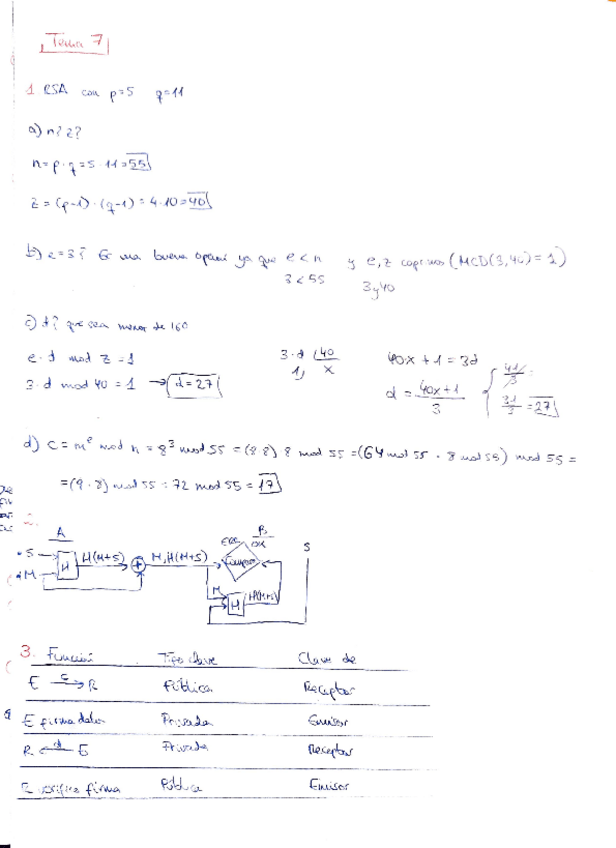 Tema 7
1 RSA con p=5 q=11
a) n? z?
n=p·q=5·11=55
z=(p-1)·(q-1)=4·10=40
b) e=3? Es una buena opción ya que e<n y e,z coprimos (MCD(3,40)=1)
3<55 3 y 40
c) d? que sea menor de 160
e·d mod z=1
3·d mod 40=1 → d=27
3·d 40
1 x
40x+1=3d
d=40x+1/3
41/3=
81/3=27
d) c=m^e mod n=8^3 mod 55=(8·8) 8 mod 55=(64 mod 55 · 8 mod 55) mod 55=
=(9·8) mod 55=72 mod 55=17
2.
A B
S H H(M+S) + M,H(M+S) S
M
M H H(M+S)
3. Función Tipo clave Clave de
E c→ R Pública Receptor
E firma datos Privada Emisor
R d← E Privada Receptor
R verifica firma Pública Emisor